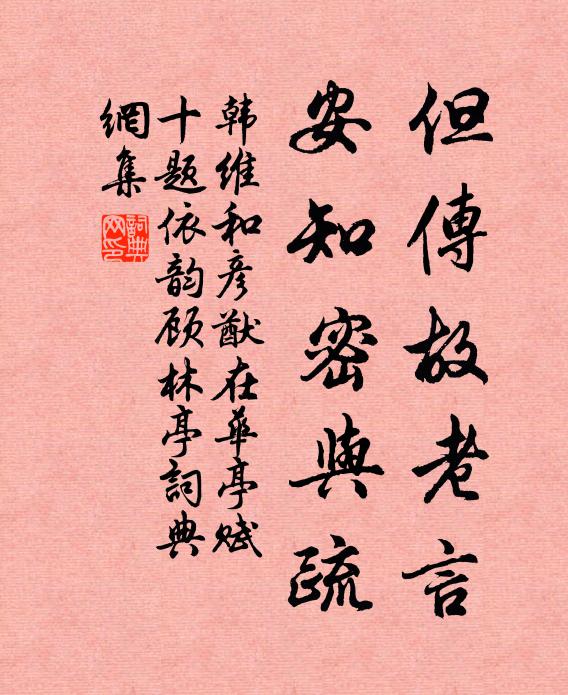 但傳故老言
安知密與疏
韩維和彦猷在華亭赋
十题依韵顾林亭詞典
網集
詞典网印